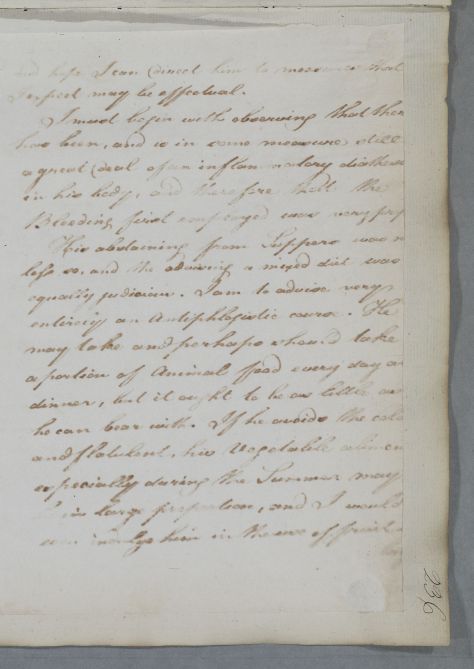 and hope I can direct him to measures that
I expect may be effectual.
I must begin with observing that ther
has been, and is in some measure still
a great deal of an inflammatory diathesi
in his body, and therefore that the
Bleeding first employed was very pro
His abstaining from Suppers was n
less so, and the advising a mixed diet was
equally judicious. I am to advise very
entirely an Antiphlogistic course. He
may take and perhaps should take
a portion of Animal food every day a
dinner, but it ought to be as little as
he can bear with. If he avoids the cold
and flatulent, his Vegetable alimen
especially during the Summer may
be in large proportion, and I would
even indulge him in the use of fruit
236